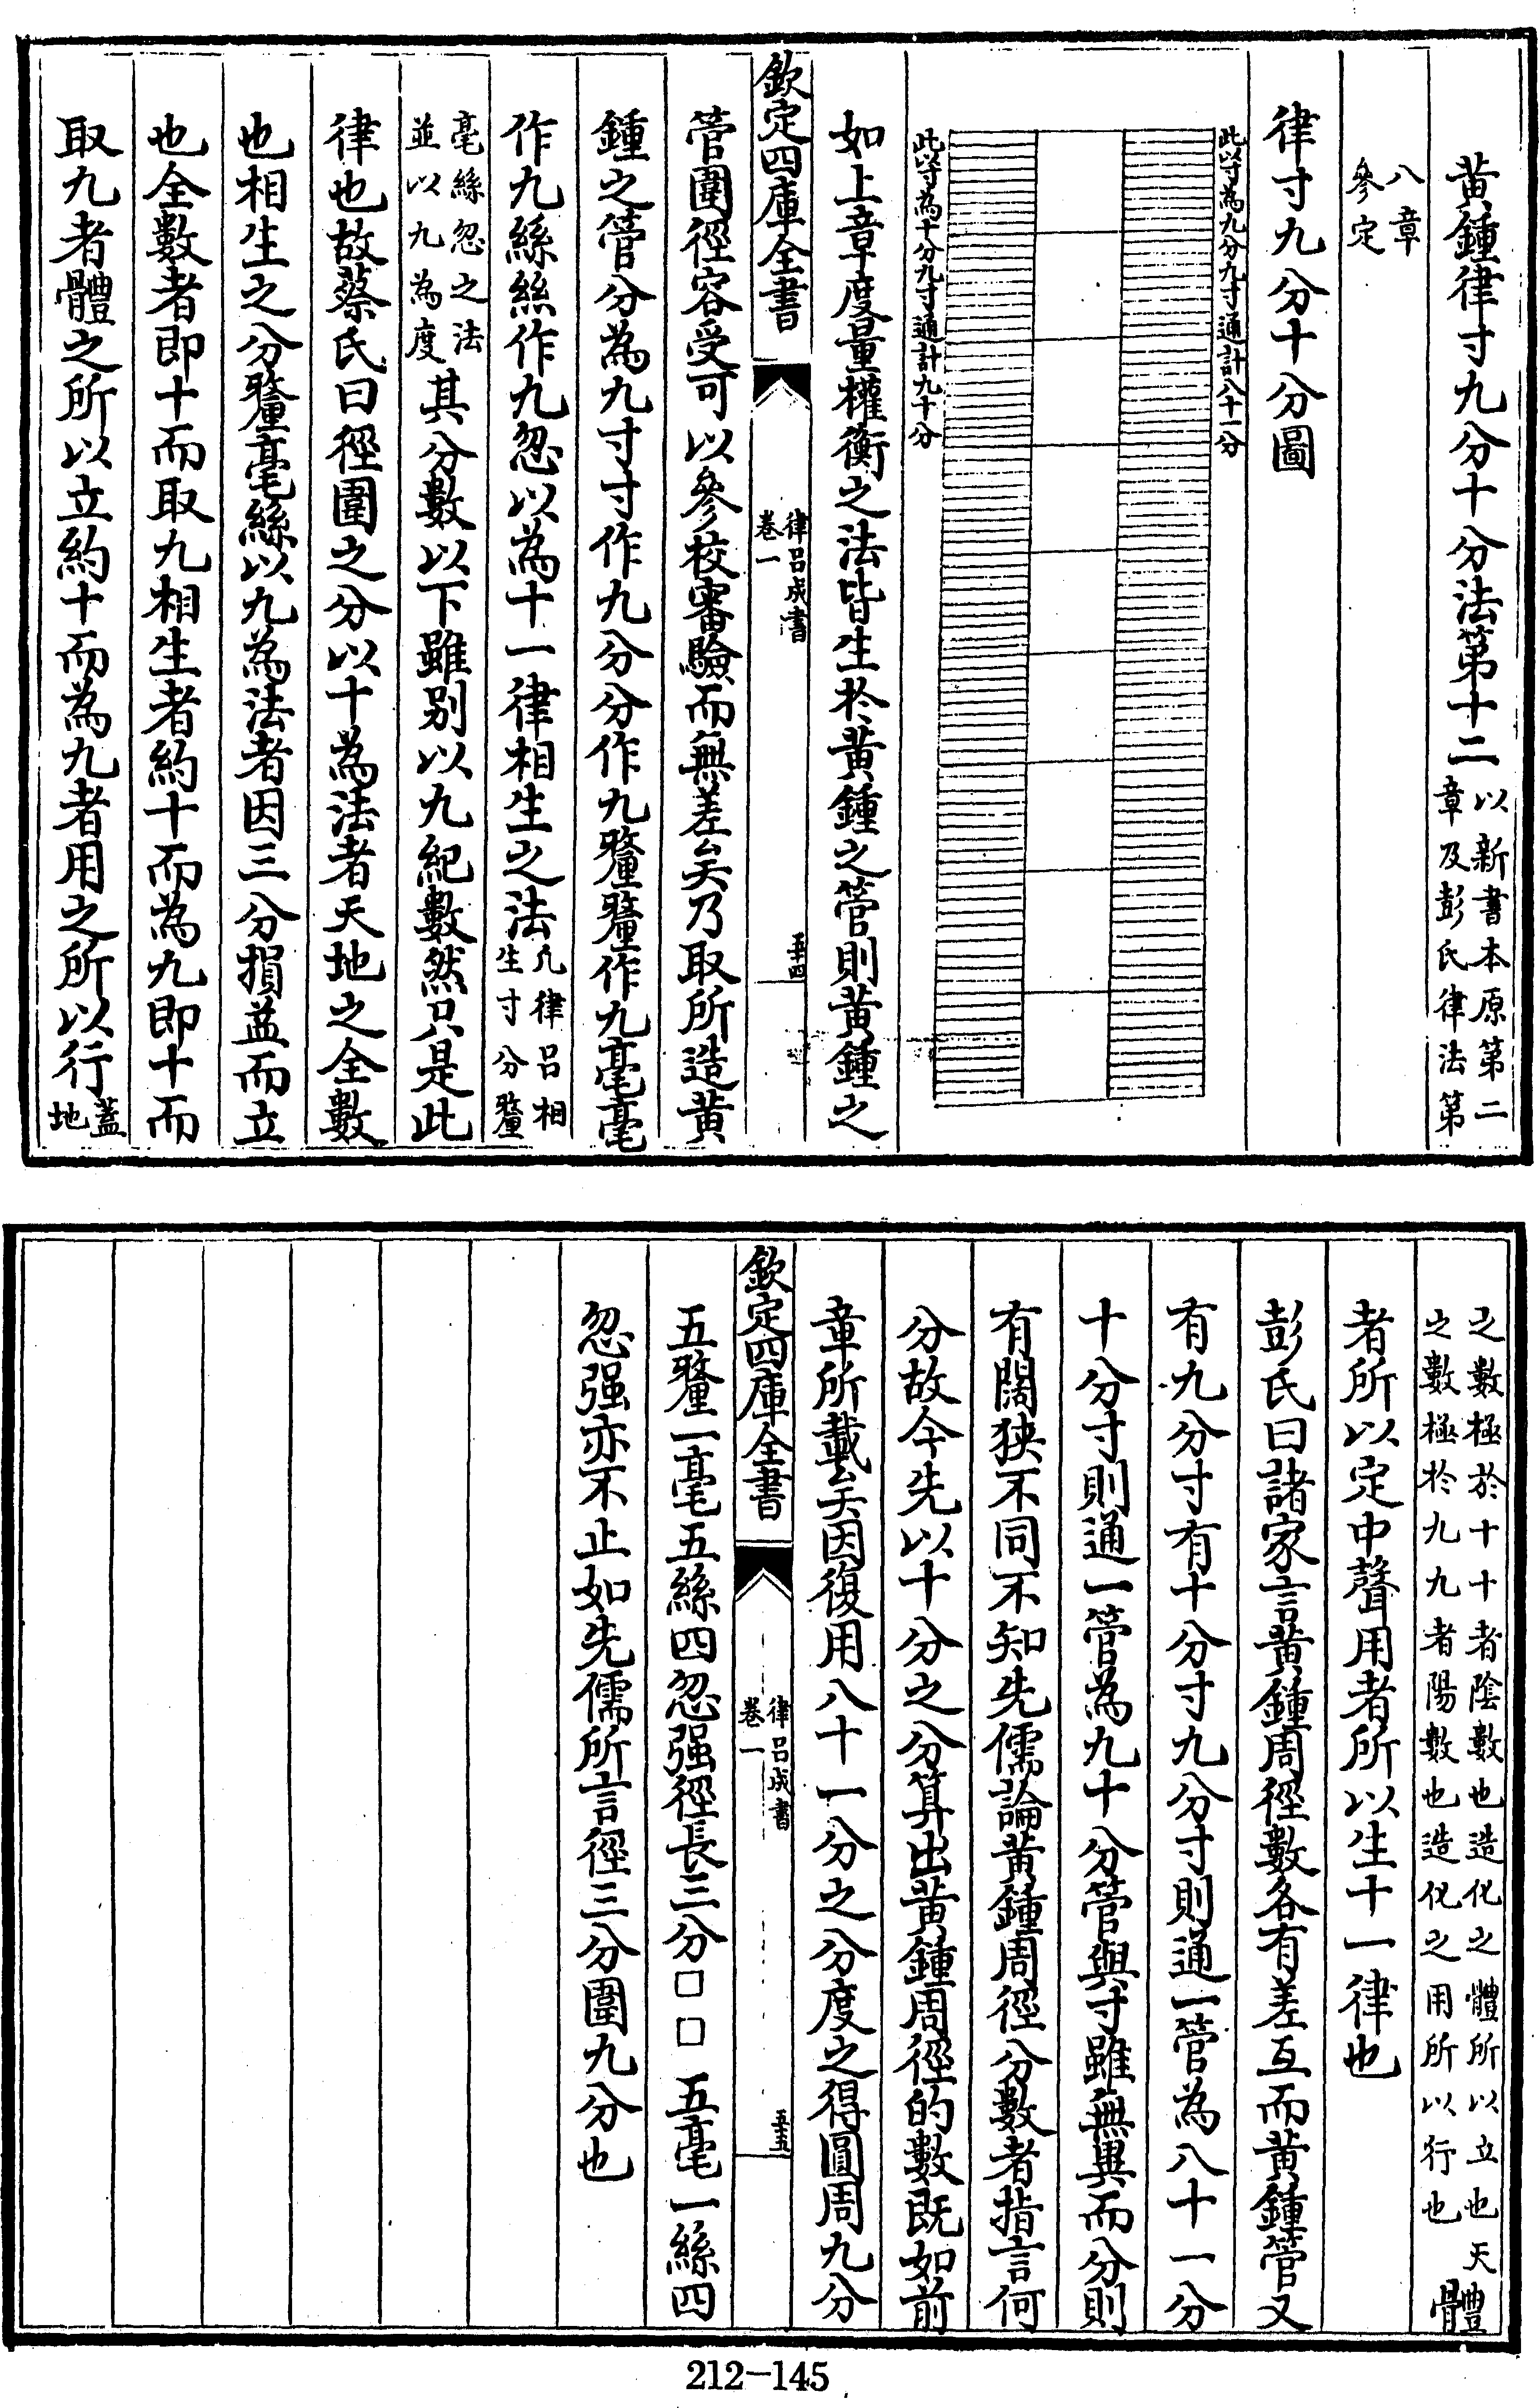 黄鍾律寸九分十分法第十二以新書本原第二
章及彭氏律法第
八章
參定
律寸九分十分圖
此以寸為九分九寸通計八十一分
此以寸為十分九寸通計九十分
如上章度量權衡之法皆生於黄鍾之管則黄鍾之
欽定四庫全書
律呂成書
卷一
五十四
管圍徑容受可以參校審驗而無差矣乃取所造黄
鍾之管分為九寸寸作九分分作九釐釐作九毫毫
作九絲絲作九忽以為十一律相生之法凡律呂相
生寸分釐
毫絲忽之法
並以九為度其分數以下雖别以九紀數然只是此
律也故蔡氏曰徑圍之分以十為法者天地之全數
也相生之分釐毫絲以九為法者因三分損益而立
也全數者即十而取九相生者約十而為九即十而
取九者體之所以立約十而為九者用之所以行蓋
地
之數極於十十者陰數也造化之體所以立也天
之數極於九九者陽數也造化之用所以行也體
者所以定中聲用者所以生十一律也
彭氏曰諸家言黄鍾周徑數各有差互而黄鍾管又
有九分寸有十分寸九分寸則通一管為八十一分
十分寸則通一管為九十分管與寸雖無異而分則
有闊狹不同不知先儒論黄鍾周徑分數者指言何
分故今先以十分之分算出黄鍾周徑的數既如前
章所載矣因復用八十一分之分度之得圓周九分
欽定四庫全書
律呂成書
卷一
五十五
五釐一毫五絲四忽强徑長三分□□五毫一絲四
忽强亦不止如先儒所言徑三分圍九分也
212-145